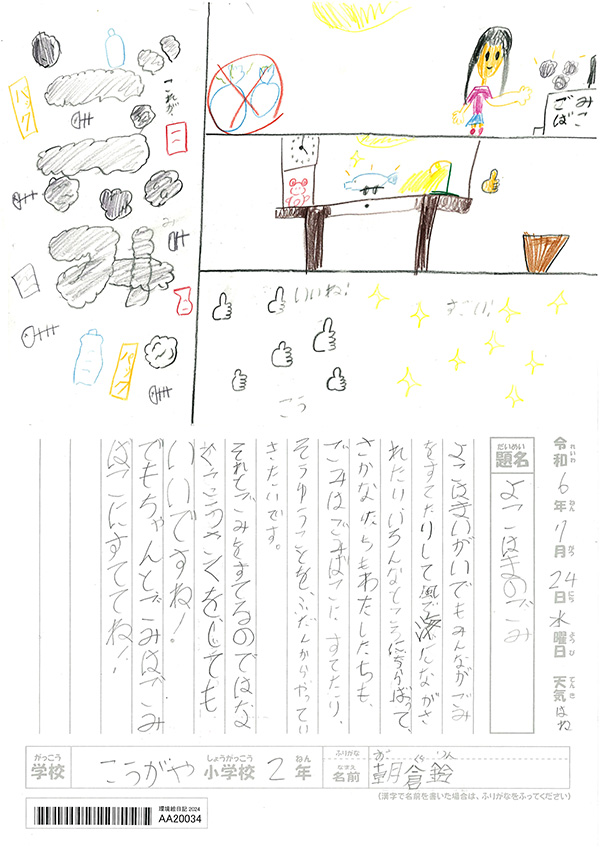 バック
これが
ごみ
ごばこ
いいね!
すごい!
こう
バック
令和6年7月24日水曜日 天気はね
れいわ ねん がつ にち ようび てんき
だいめい
題名
よこはまのごみ
よこはまいがいでもみんながごみ
をすてたりして風で海にながさ
れたり、いろんなところにちらばって、
さかなたちもわたしたちも、
ごみはごみばこにすてたり、
そうゆうことをふだんからやってい
きたいです。
それとごみをすてるのではな
こうさくをしても
いいですね!
でもちゃんとごみはごみ
ばこにすててね!!
がっこう しょうがっこう ねん ふりがな
学校 こうがや 小学校 2年 なまえ 名前 朝倉鈴
(漢字で名前を書いた場合は、ふりがなをふってください)
環境絵日記 2024
AA20034